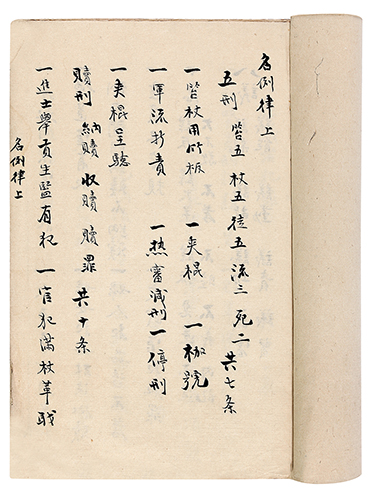 名例律上
五刑 笞五 杖五 徒五 流三 死二 共七条
一笞杖用竹板 一夹棍 一枷號
一軍流折責 一热審减刑 一停刑
一夹棍呈驗
贖刑 納贖 收贖 贖罪 共十条
一進士舉貢生監有犯 一官犯滿杖革職
名例律上